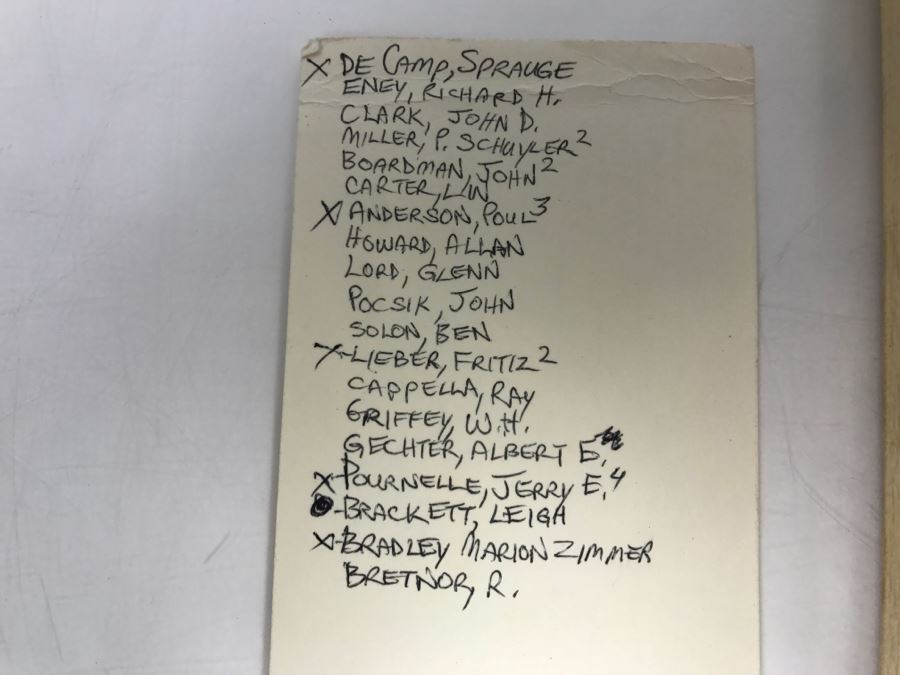 X DE CAMP, SPRAUGE
ENEY, RICHARD H.
CLARK, JOHN D.
MILLER, P. SCHUYLER 2
BOARDMAN, JOHN 2
CARTER, LIN
X ANDERSON, POUL 3
HOWARD, ALLAN
LORD, GLENN
POCSIK, JOHN
SOLON, BEN
X-LIEBER, FRITIZ 2
CAPPELLA, RAY
GRIFFEY, W.H.
GECHTER, ALBERT E.
X-POURNELLE, JERRY E. 4
●-BRACKETT, LEIGH
X-BRADLEY MARION ZIMMER
BRETNOR, R.